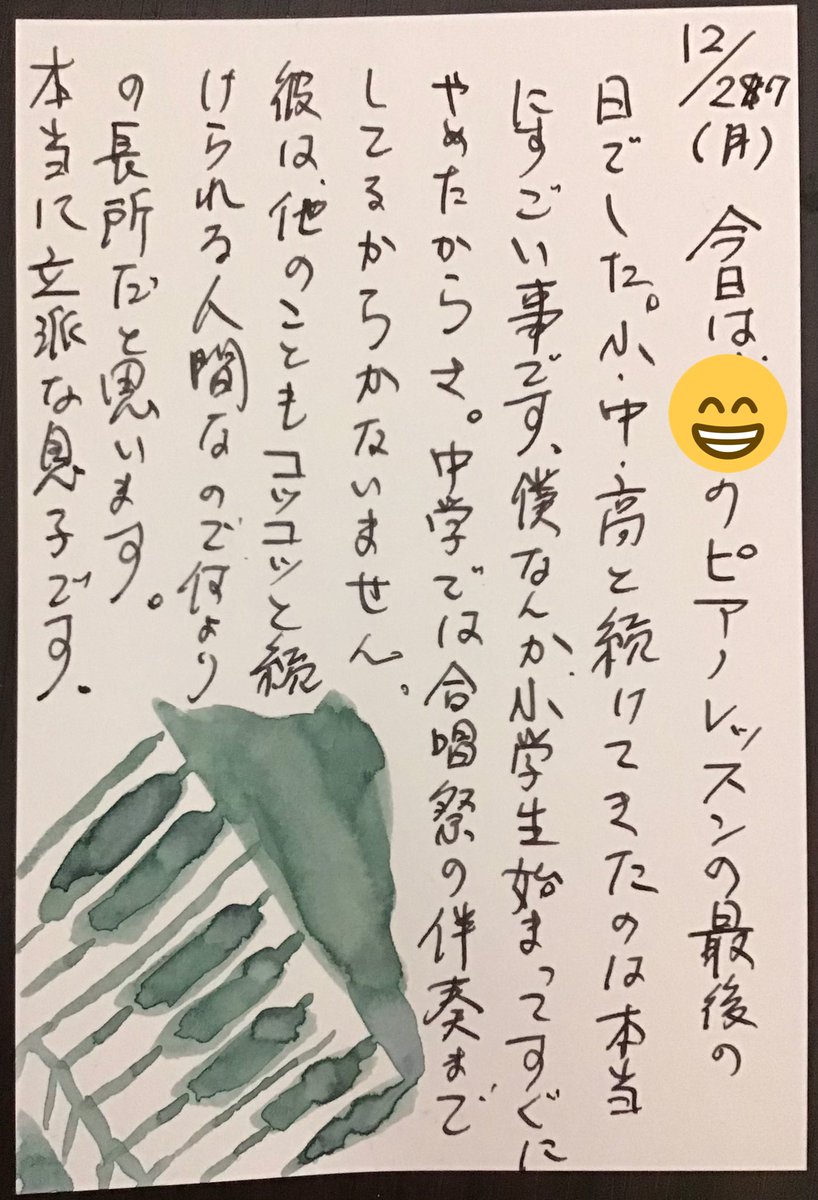 12/27(月) 今日は、のピアノレッスンの最後の
日でした。小・中・高と続けてきたのは本当
にすごい事です、僕なんか小学生始まってすぐに
やめたからさ。中学では合唱祭の伴奏まで
してるからかないません。
彼は、他のこともコツコツと続
けられる人間なので何より
の長所だと思います。
本当に立派な息子です。